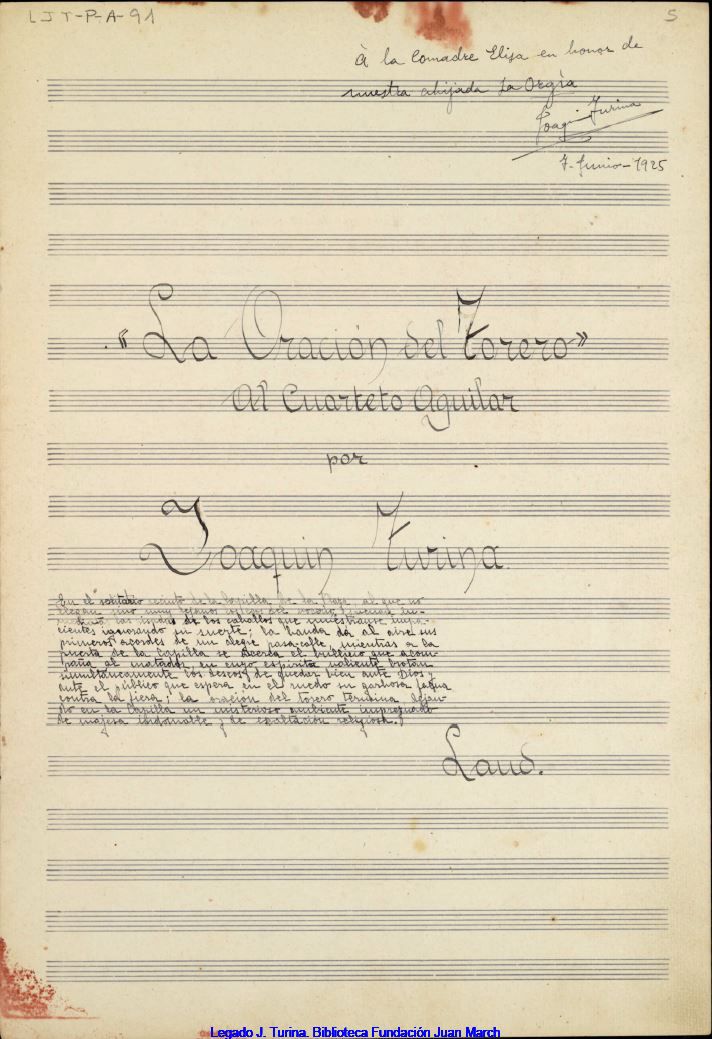 LJT-P-A-91
5
A la Comadre Elisa en honor de
nuestra ahijada La Orgía
Joaquin Turina
7-Junio-1925
«La Oración del Torero»
Al Cuarteto Aguilar
por
Joaquin Turina.
En el solitario recinto de la Capilla de la Plaza, al que no
llegan sino muy lejanos
de los caballos que muestranse impa-
cientes ignorando su suerte; la banda da al aire sus
primeros acordes de un alegre pasa-calle mientras a la
puerta de la Capilla se acerca el bullicio que acom-
paña al matador, en cuyo espíritu valiente brotan
simultaneamente los deseos de quedar bien ante Dios y
ante el público que espera en el ruedo su garbosa faena
contra la fiera; la oración del torero termina dejan-
do en la Capilla un misterioso ambiente impregnado
de majeza indomable y de exaltación religiosa.
Laud.
Legado J. Turina. Biblioteca Fundación Juan March